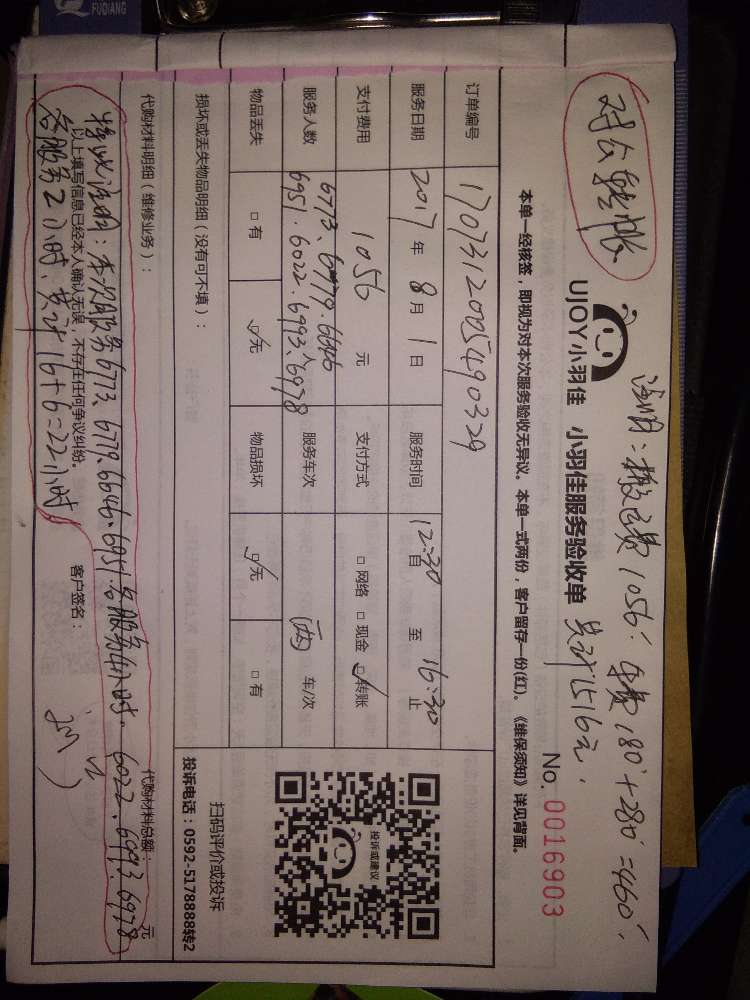 FUQIANG
对公转账
注明：搬运费1056. 车费180+280=460.
共计1516元.
UJOY小羽佳 小羽佳服务验收单
No. 0016903
本单一经核签，即视为对本次服务验收无异议。本单一式两份，客户留存一份(红)。《维保须知》详见背面。
订单编号 1707312005490329
服务日期 2017年8月1日 服务时间 12:30首 至 16:30止
支付费用 1056 元 支付方式 □网络 □现金 ☑转账
服务人数 6773、6779.6646 6951.6022.6993.6978 人 服务车次 两 车/次
物品丢失 □有 ☑无 物品损坏 ☑无 □有
损坏或丢失物品明细（没有可不填）：
代购材料明细（维修业务）：
代购材料总额： 元
特此注明：本次服务6773、6779.6646.6951各服务4小时. 6022.6993.6978
以上填写信息已经本人确认无误，不存在任何争议纠纷。
各服务2小时、共计16+6=22小时
客户签名：
投诉或建议
扫码评价或投诉
投诉电话：0592-5178888转2